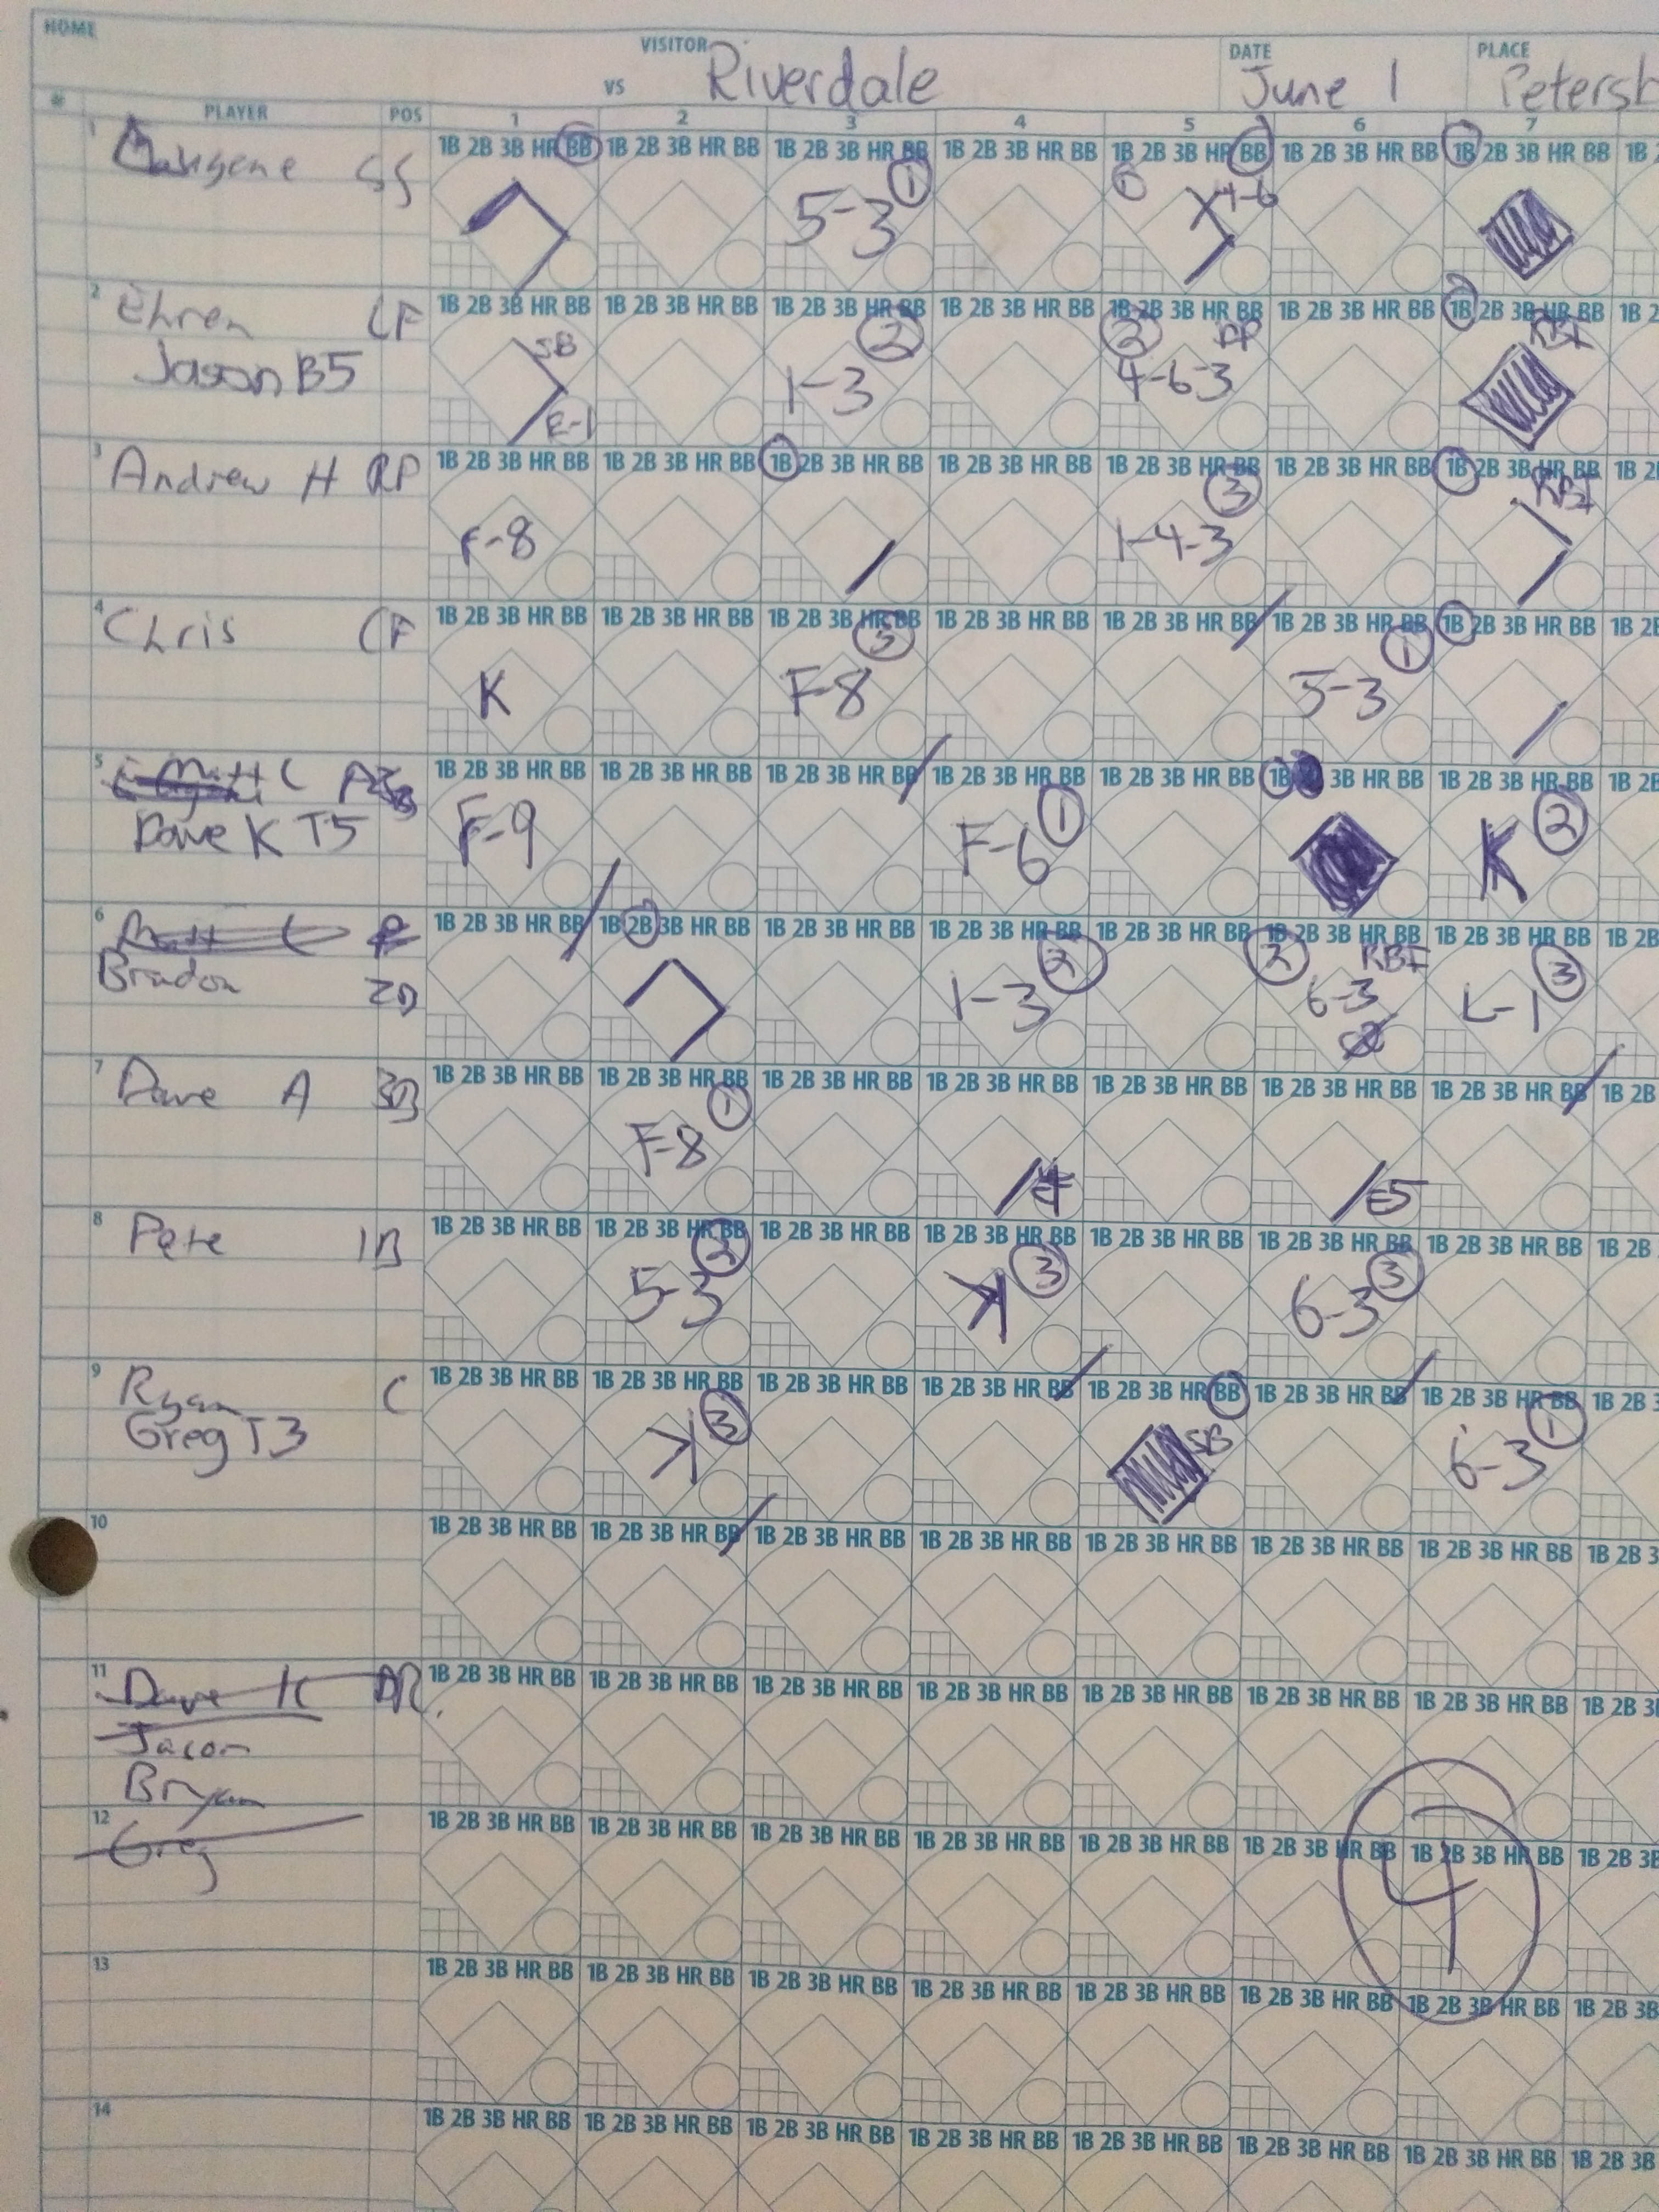 HOME
VISITOR
VS Riverdale
DATE
June 1
PLACE
Petersb
# PLAYER POS 1 2 3 4 5 6 7
1 SS
1B 2B 3B HR BB 1B 2B 3B HR BB 1B 2B 3B HR BB 1B 2B 3B HR BB 1B 2B 3B HR BB 1B 2B 3B HR BB 1B 2B 3B HR BB 1B 2
5-3 1 1 4-6
2 Ehren LF
1B 2B 3B HR BB 1B 2B 3B HR BB 1B 2B 3B HR BB 1B 2B 3B HR BB 1B 2B 3B HR BB 1B 2B 3B HR BB 1B 2B 3B HR BB 1B 2
Jason B5
SB E-1 1-3 2 2 DP 4-6-3 RBI
3 Andrew H RF
1B 2B 3B HR BB 1B 2B 3B HR BB 1B 2B 3B HR BB 1B 2B 3B HR BB 1B 2B 3B HR BB 1B 2B 3B HR BB 1B 2B 3B HR BB 1B 2
F-8 1-4-3 3 RBI
4 Chris CF
1B 2B 3B HR BB 1B 2B 3B HR BB 1B 2B 3B HR BB 1B 2B 3B HR BB 1B 2B 3B HR BB 1B 2B 3B HR BB 1B 2B 3B HR BB 1B 2B
K F-8 3 5-3 1
5 Matt C
1B 2B 3B HR BB 1B 2B 3B HR BB 1B 2B 3B HR BB 1B 2B 3B HR BB 1B 2B 3B HR BB 1B 3B HR BB 1B 2B 3B HR BB 1B 2B
Dave K T5
F-9 F-6 1 K 2
6 Matt C P
1B 2B 3B HR BB 1B 2B 3B HR BB 1B 2B 3B HR BB 1B 2B 3B HR BB 1B 2B 3B HR BB 1B 2B 3B HR BB 1B 2B 3B HR BB 1B 2B
Bradon 2B
1-3 2 2 RBI 6-3 L-1 3
7 Dave A 3B
1B 2B 3B HR BB 1B 2B 3B HR BB 1B 2B 3B HR BB 1B 2B 3B HR BB 1B 2B 3B HR BB 1B 2B 3B HR BB 1B 2B 3B HR BB 1B 2B
F-8 1 E5
8 Pete 1B
1B 2B 3B HR BB 1B 2B 3B HR BB 1B 2B 3B HR BB 1B 2B 3B HR BB 1B 2B 3B HR BB 1B 2B 3B HR BB 1B 2B 3B HR BB 1B 2B
5-3 2 K 3 6-3 3
9 Ryan C
1B 2B 3B HR BB 1B 2B 3B HR BB 1B 2B 3B HR BB 1B 2B 3B HR BB 1B 2B 3B HR BB 1B 2B 3B HR BB 1B 2B 3B HR BB 1B 2B 3
Greg T3
K 3 SB 6-3 1
10
1B 2B 3B HR BB 1B 2B 3B HR BB 1B 2B 3B HR BB 1B 2B 3B HR BB 1B 2B 3B HR BB 1B 2B 3B HR BB 1B 2B 3B HR BB 1B 2B 3
11 Dave K
1B 2B 3B HR BB 1B 2B 3B HR BB 1B 2B 3B HR BB 1B 2B 3B HR BB 1B 2B 3B HR BB 1B 2B 3B HR BB 1B 2B 3B HR BB 1B 2B 3
Jason
Bryan
12 Greg
1B 2B 3B HR BB 1B 2B 3B HR BB 1B 2B 3B HR BB 1B 2B 3B HR BB 1B 2B 3B HR BB 1B 2B 3B HR BB 1B 2B 3B HR BB 1B 2B 3B
4
13
1B 2B 3B HR BB 1B 2B 3B HR BB 1B 2B 3B HR BB 1B 2B 3B HR BB 1B 2B 3B HR BB 1B 2B 3B HR BB 1B 2B 3B HR BB 1B 2B 3B
14
1B 2B 3B HR BB 1B 2B 3B HR BB 1B 2B 3B HR BB 1B 2B 3B HR BB 1B 2B 3B HR BB 1B 2B 3B HR BB 1B 2B 3B HR BB 1B 2B 3B